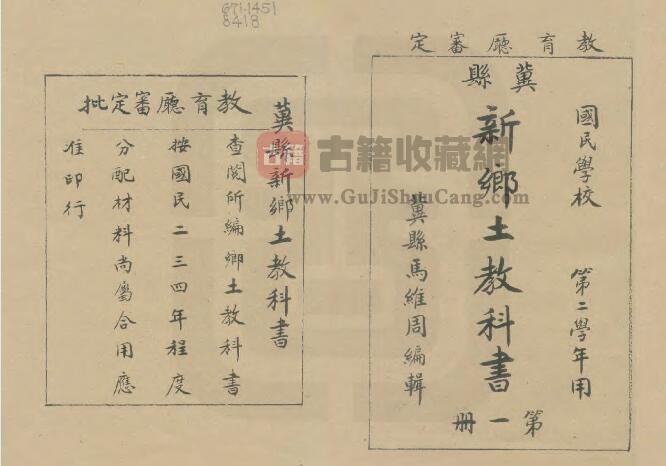 671.1451
8418
教育廳審定
冀縣
國民學校 第二學年用
新鄉土教科書
冀縣馬維周編輯
第一冊
教育廳審定批
冀縣新鄉土教科書
查閱所編鄉土教科書
按國民二三四年程度
分配材料尚屬合用應
准印行
古籍
古籍收藏網
www.GuJiShouCang.com